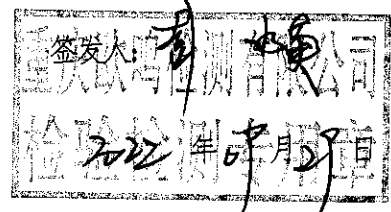 签发人:
重庆欧鸣检测有限公司
检验检测专用章
2022年09月29日